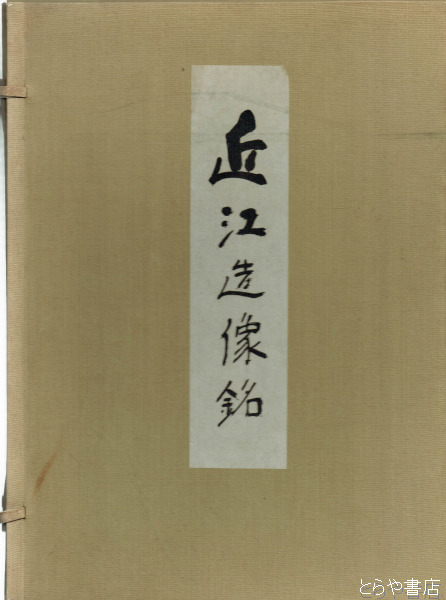 近江造像銘
とらや書店